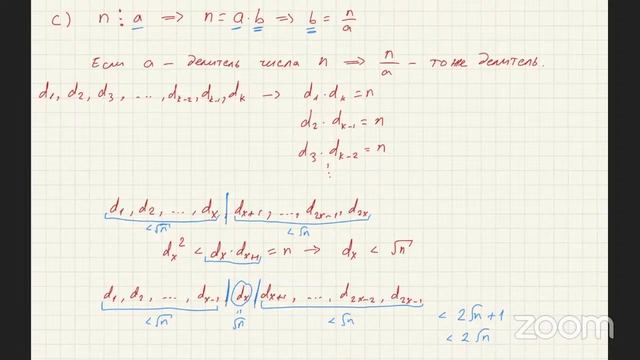 c) n ⋮ a ⟹ n = a · b ⟹ b = n/a
Если a – делитель числа n ⟹ n/a – тоже делитель.
d₁, d₂, d₃, ..., d_{k-2}, d_{k-1}, d_k → d₁ · d_k = n
d₂ · d_{k-1} = n
d₃ · d_{k-2} = n
⋮
d₁, d₂, ..., d_x | d_{x+1}, ..., d_{2x-1}, d_{2x}
<√n <√n
d_x² < d_x · d_{x+1} = n → d_x < √n
d₁, d₂, ..., d_{x-1} | d_x | d_{x+1}, ..., d_{2x-2}, d_{2x-1}
<√n = √n <√n
< 2√n + 1
< 2√n
zoom